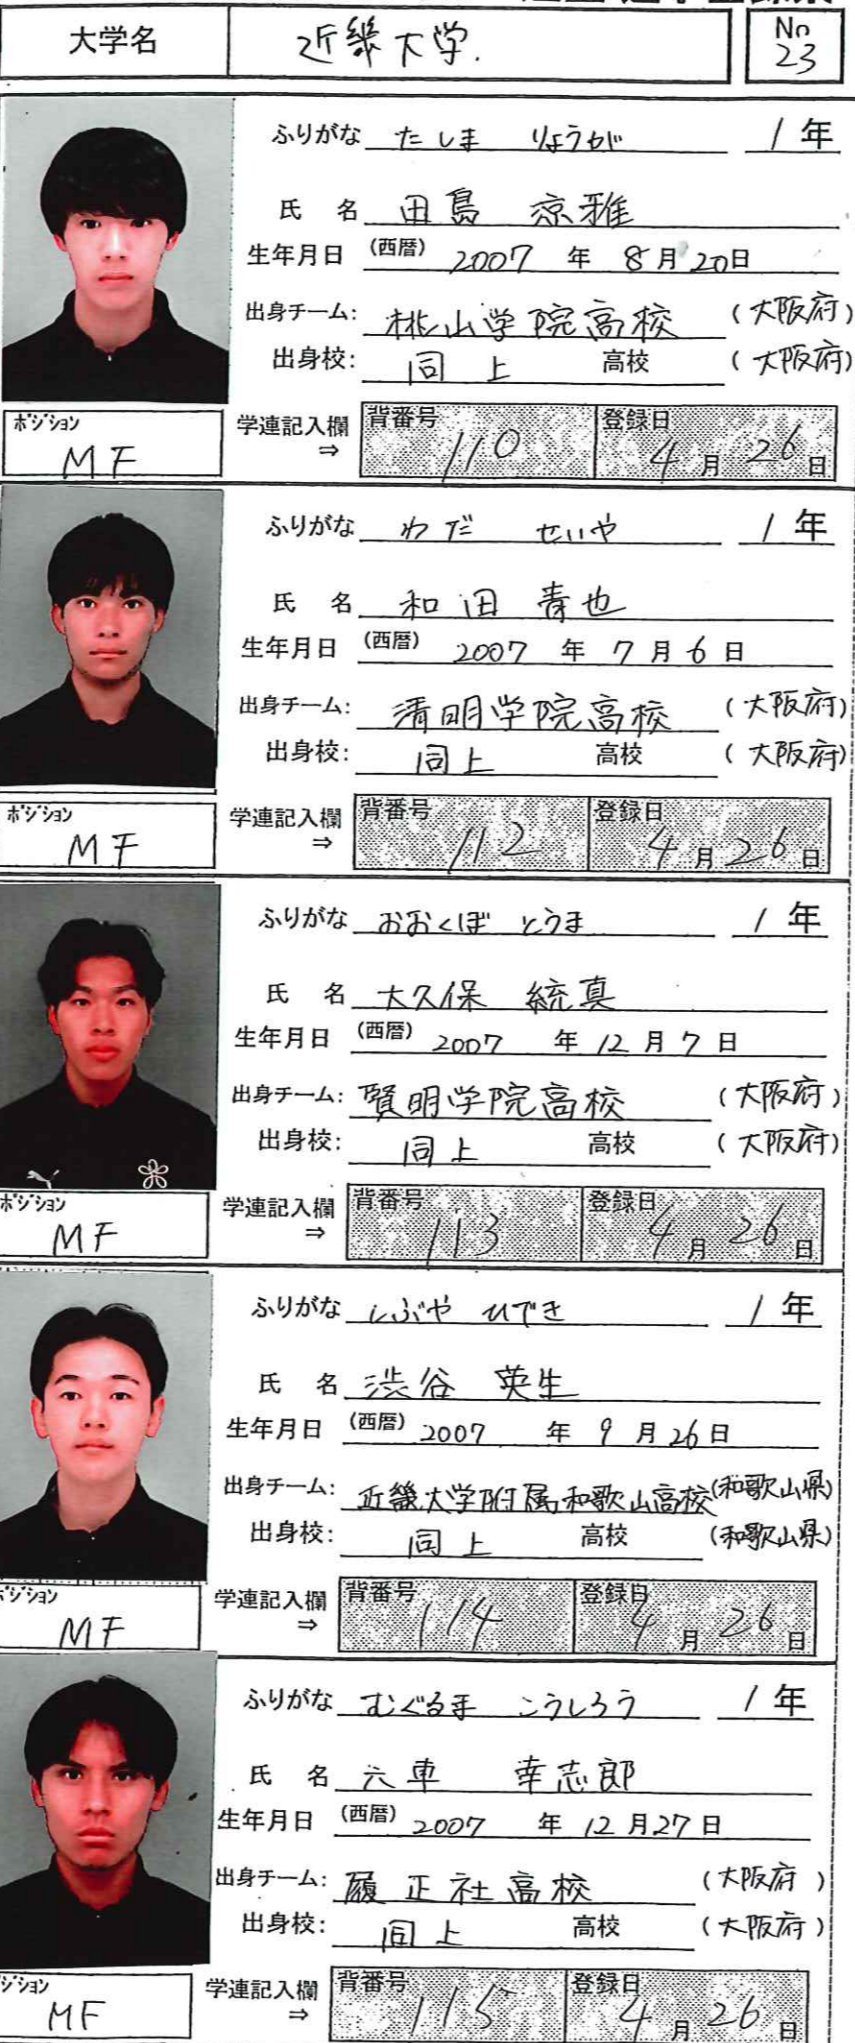 大学名 近畿大学. No 23
ふりがな たしま りょうが 1年
氏 名 田島 涼雅
生年月日 (西暦) 2007 年 8月20日
出身チーム: 桃山学院高校 (大阪府)
出身校: 同上 高校 (大阪府)
ポジション MF 学連記入欄 ⇒ 背番号 110 登録日 4月26日
ふりがな わだ せいや 1年
氏 名 和田 青也
生年月日 (西暦) 2007 年 7月6日
出身チーム: 清明学院高校 (大阪府)
出身校: 同上 高校 (大阪府)
ポジション MF 学連記入欄 ⇒ 背番号 112 登録日 4月26日
ふりがな おおくぼ とうま 1年
氏 名 大久保 統真
生年月日 (西暦) 2007 年 12月7日
出身チーム: 賢明学院高校 (大阪府)
出身校: 同上 高校 (大阪府)
ポジション MF 学連記入欄 ⇒ 背番号 113 登録日 4月26日
ふりがな しぶや ひでき 1年
氏 名 渋谷 英生
生年月日 (西暦) 2007 年 9月26日
出身チーム: 近畿大学附属和歌山高校 (和歌山県)
出身校: 同上 高校 (和歌山県)
ポジション MF 学連記入欄 ⇒ 背番号 114 登録日 4月26日
ふりがな むぐるま こうしろう 1年
氏 名 六車 幸志郎
生年月日 (西暦) 2007 年 12月27日
出身チーム: 履正社高校 (大阪府)
出身校: 同上 高校 (大阪府)
ポジション MF 学連記入欄 ⇒ 背番号 115 登録日 4月26日